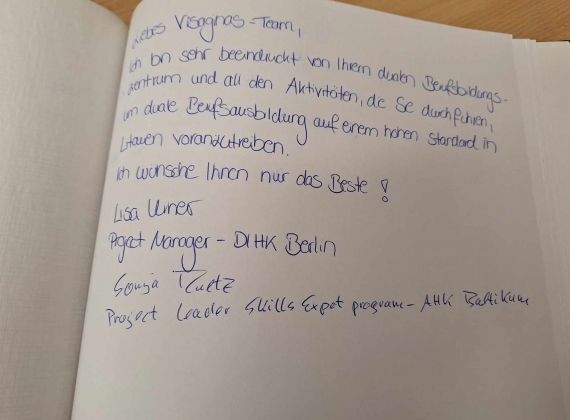 Liebes Visaginas-Team,
ich bin sehr beeindruckt von Ihrem dualen Berufsbildungs-
zentrum und all den Aktivitäten, die Sie durchführen,
um duale Berufsausbildung auf einem hohen Standard in
Litauen voranzutreiben.
Ich wünsche Ihnen nur das Beste!
Lisa
Project Manager - DIHK Berlin
Sonja
Project Leader Skills Expert program - AHK Baltikum